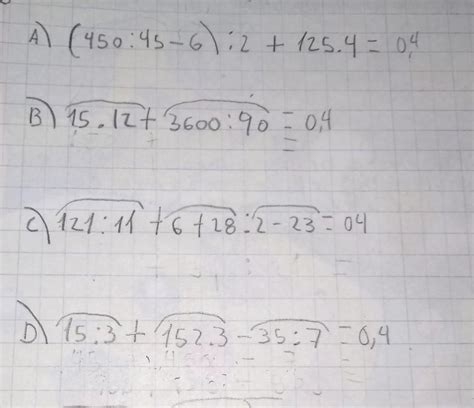 A) (450:45-6):2 + 125.4 = 0,4
B) 15.12 + 3600:90 = 0,4
C) 121:11 + 6 + 28:2 - 23 = 04
D) 15:3 + 152.3 - 35:7 = 0,4